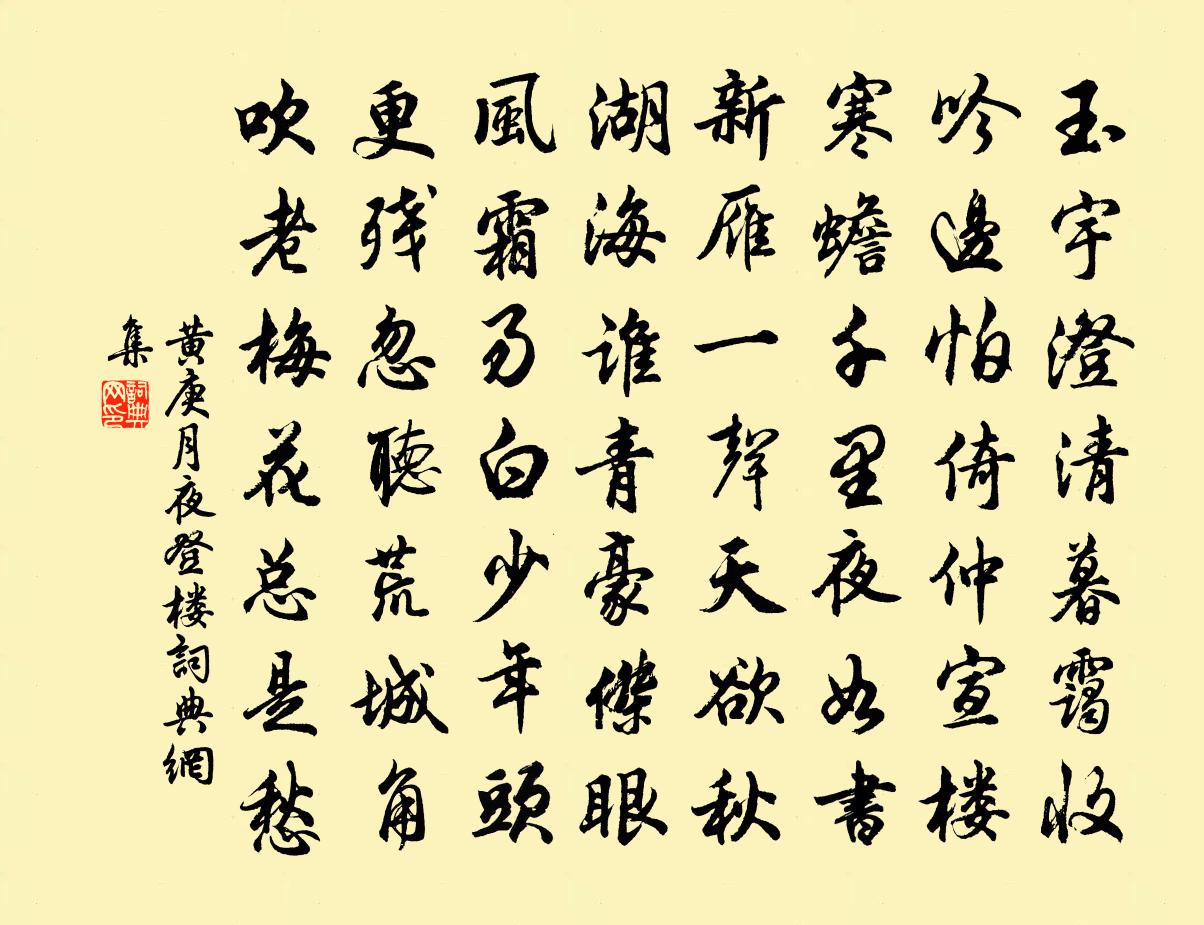 玉宇澄清暮靄收
吟邊怕倚仲宣楼
寒蟾千里夜如書
新雁一聲天欲秋
湖海誰青豪傑眼
風霜易白少年頭
更残忽聽荒城角
吹老梅花总是愁
黄庚月夜登楼詞典網
集
詞典
网印